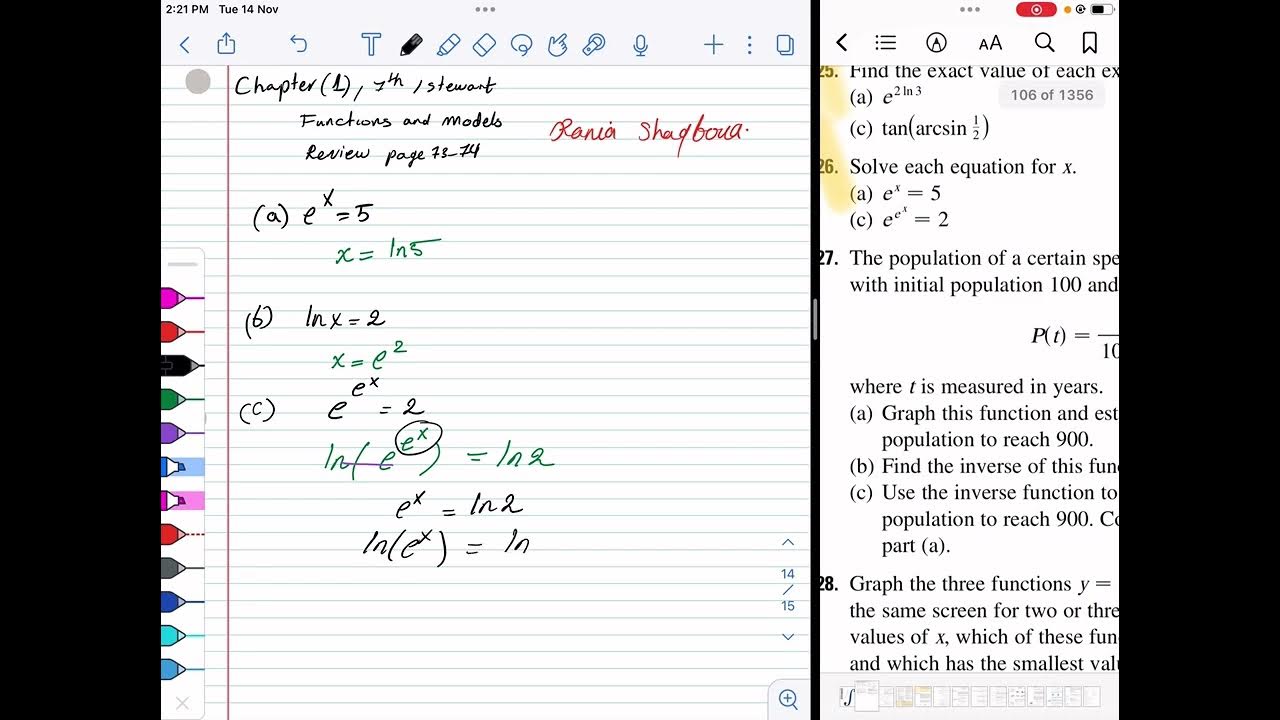 2:21 PM Tue 14 Nov
T
Chapter (1), 7th, stewart
Functions and models
Review page 73-74
Rania Shaqboua.
(a) e^x = 5
x = ln5
(b) lnx = 2
x = e^2
(c) e^{e^x} = 2
ln(e^{e^x}) = ln2
e^x = ln2
ln(e^x) = ln
14
/
15
AA
25. Find the exact value of each ex
(a) e^{2 ln 3}
106 of 1356
(c) tan(arcsin 1/2)
26. Solve each equation for x.
(a) e^x = 5
(c) e^{e^x} = 2
27. The population of a certain spe
with initial population 100 and
P(t) =
10
where t is measured in years.
(a) Graph this function and est
population to reach 900.
(b) Find the inverse of this fun
(c) Use the inverse function to
population to reach 900. Co
part (a).
28. Graph the three functions y =
the same screen for two or thre
values of x, which of these fun
and which has the smallest val